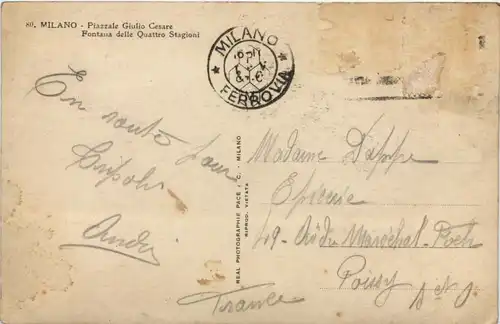 80. MILANO - Piazzale Giulio Cesare
Fontana delle Quattro Stagioni
MILANO
FERROVIA
En route pour
Tripoli
André
REAL PHOTOGRAPHIE PACE & C. - MILANO
RIPROD. VIETATA
Madame Dappe
Epicerie
49 - Av. du Maréchal-Foch
Poissy S et O.
France